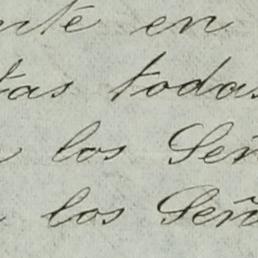 nte en
tas todas
los Señ
los Seño